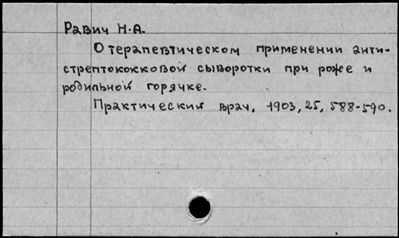 Равич Н.А.
О терапевтическом применении анти-
стрептококковой сыворотки при роже и
родильной горячке.
Практический врач, 1903, 25, 588-590.